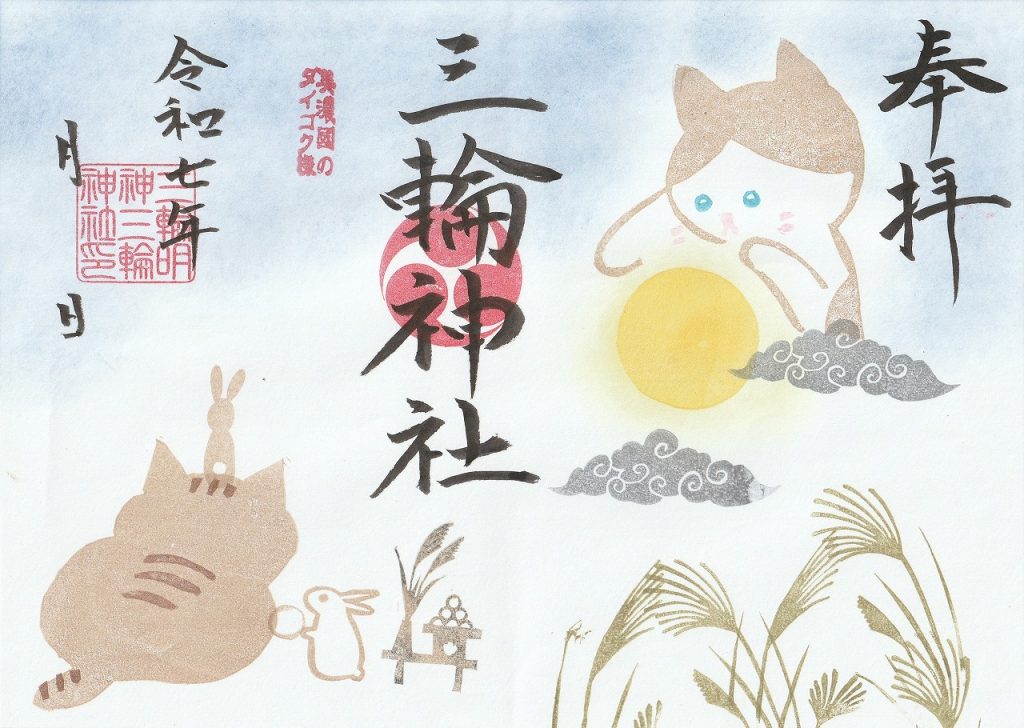 奉拝
三輪神社
美濃國の
ダイコク様
令和七年
月 日
三輪明
神三輪
神社印